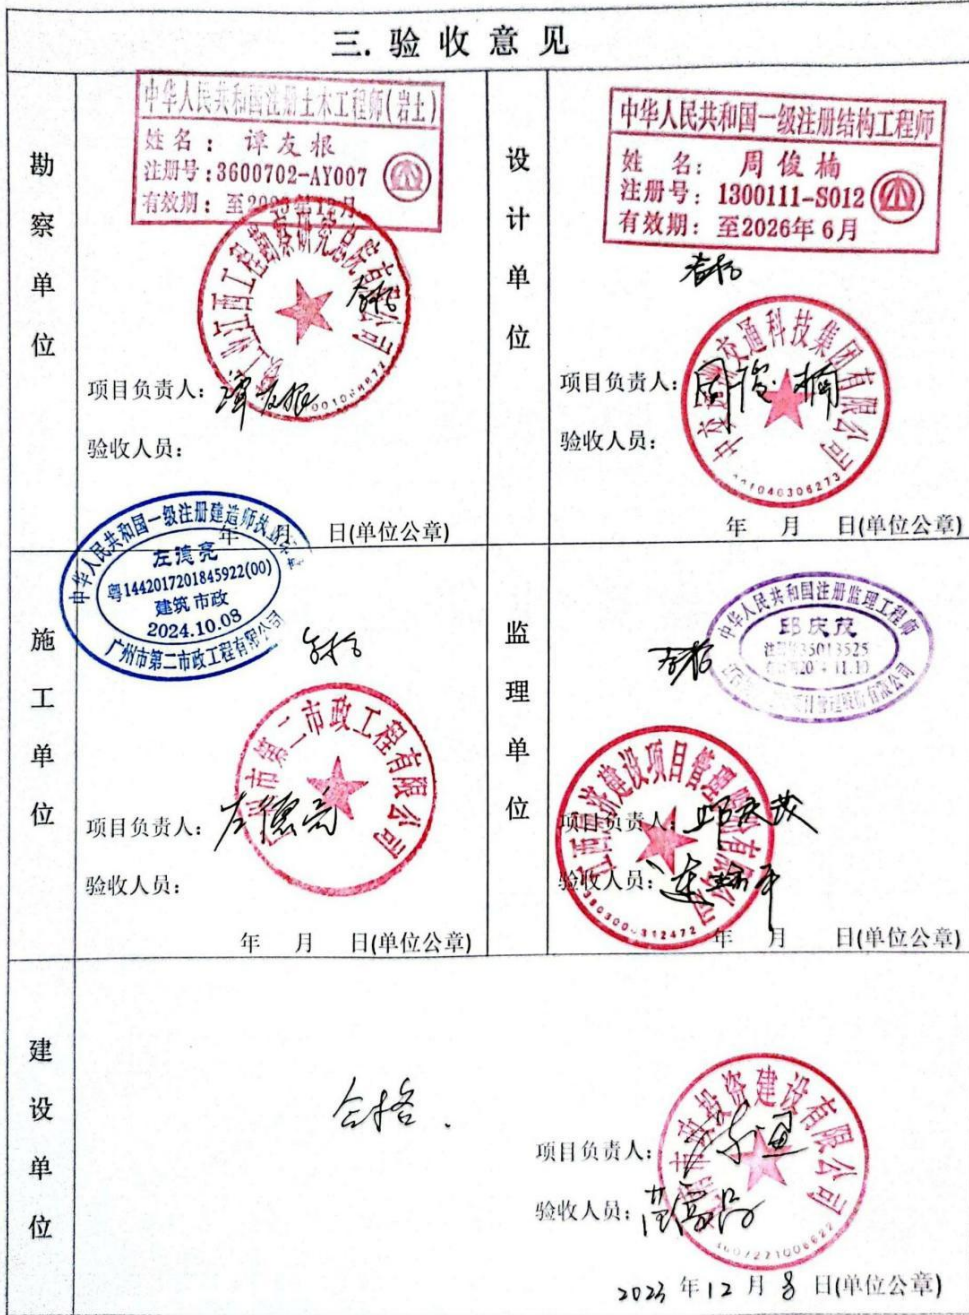 三.验收意见
勘察单位
中华人民共和国注册土木工程师(岩土)
姓名：谭友根
注册号：3600702-AY007
有效期：至2023年12月
江西工程勘察研究总院有限公司
合格
项目负责人：谭友根
验收人员：
年 月 日(单位公章)
设计单位
中华人民共和国一级注册结构工程师
姓名：周俊楠
注册号：1300111-S012
有效期：至2026年6月
合格
交通科技集团有限公司
项目负责人：周俊楠
验收人员：
年 月 日(单位公章)
施工单位
中华人民共和国一级注册建造师执业
左德亮
粤1442017201845922(00)
建筑 市政
2024.10.08
广州市第二市政工程有限公司
合格
市第二市政工程有限公司
项目负责人：左德亮
验收人员：
年 月 日(单位公章)
监理单位
中华人民共和国注册监理工程师
邱庆茂
35013525
合格
建设项目管理 有限公司
项目负责人：邱庆茂
验收人员：
年 月 日(单位公章)
建设单位
合格.
投资建设有限公司
项目负责人：
验收人员：
2023 年 12 月 8 日(单位公章)